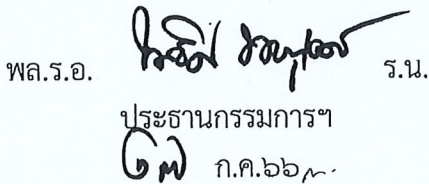 พล.ร.อ. ร.น.
ประธานกรรมการฯ
๒๗ ก.ค.๖๖